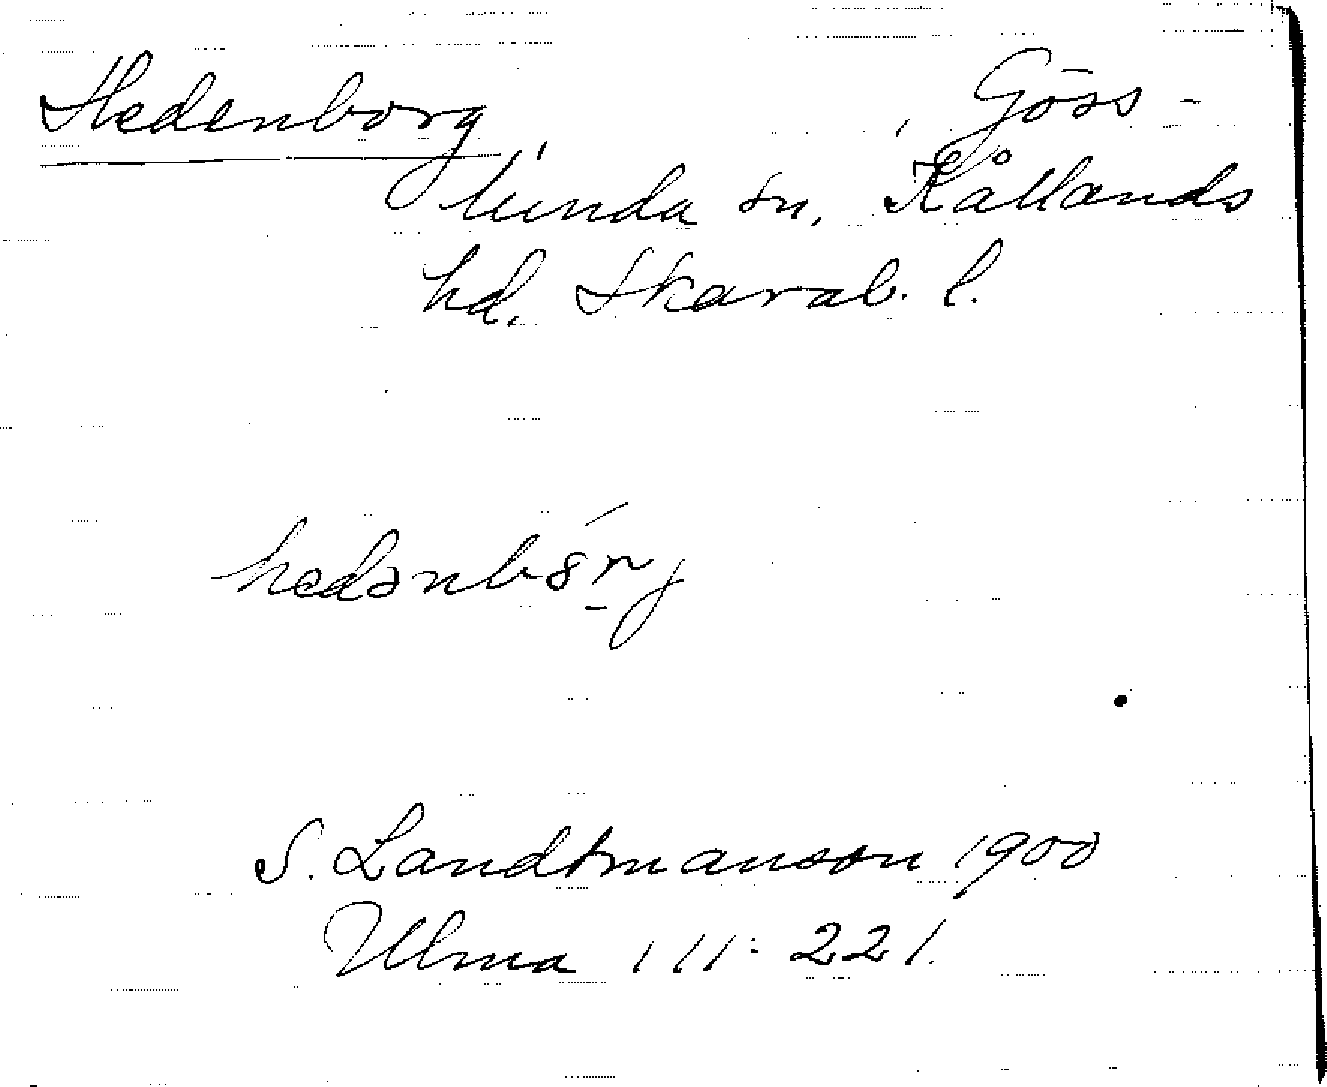 Hedenborg, Göss-
lunda sn, Kållands
hd. Skarab. l.
S. Landtmanson 1900
Ulma 111:221.